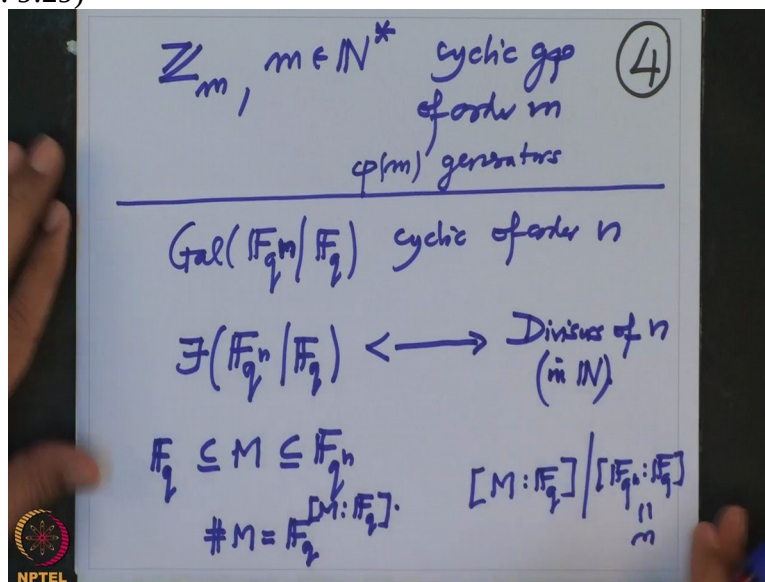 : 5:25)
ℤ_m, m ∈ ℕ* cyclic gp
④
of order m
φ(m) generators
Gal(𝔽_{q^n} | 𝔽_q) cyclic of order n
ℱ(𝔽_{q^n} | 𝔽_q) <⟶ Divisors of n
(in ℕ).
𝔽_q ⊆ M ⊆ 𝔽_{q^n}
[M:𝔽_q] | [𝔽_{q^n}:𝔽_q]
#M = 𝔽_q^{[M:𝔽_q]}.
||
n
NPTEL